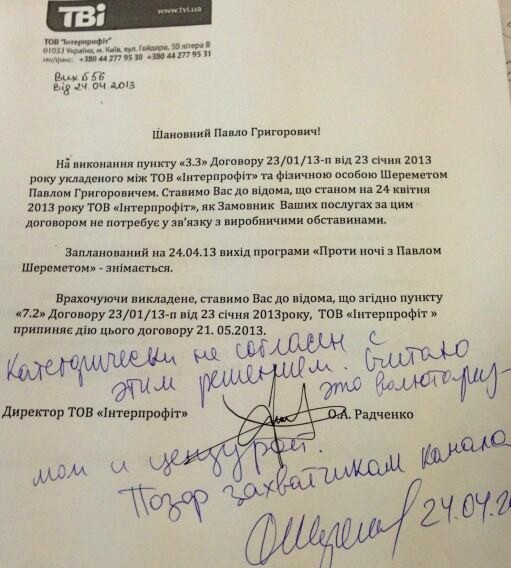 ТВі
www.tvi.ua
ТОВ "Інтерпрофіт"
01033 Україна, м. Київ, вул. Гайдара, 50 літера В
тел/факс: +380 44 277 95 30 +380 44 277 95 31
Вих №56
Від 24.04.2013
Шановний Павло Григорович!
На виконання пункту «3.3» Договору 23/01/13-п від 23 січня 2013
року укладеного між ТОВ «Інтерпрофіт» та фізичною особою Шереметом
Павлом Григоровичем. Ставимо Вас до відома, що станом на 24 квітня
2013 року ТОВ «Інтерпрофіт», як Замовник Ваших послугах за цим
договором не потребує у зв'язку з виробничими обставинами.
Запланований на 24.04.13 вихід програми «Проти ночі з Павлом
Шереметом» - знімається.
Врахочуючи викладене, ставимо Вас до відома, що згідно пункту
«7.2» Договору 23/01/13-п від 23 січня 2013року, ТОВ «Інтерпрофіт »
припиняє дію цього договору 21. 05.2013.
Категорически не согласен с
этим решением. Считаю
это волютариз-
Директор ТОВ «Інтерпрофіт» О.А. Радченко
мом и цензурой.
Позор захватчикам канала
24.04.2